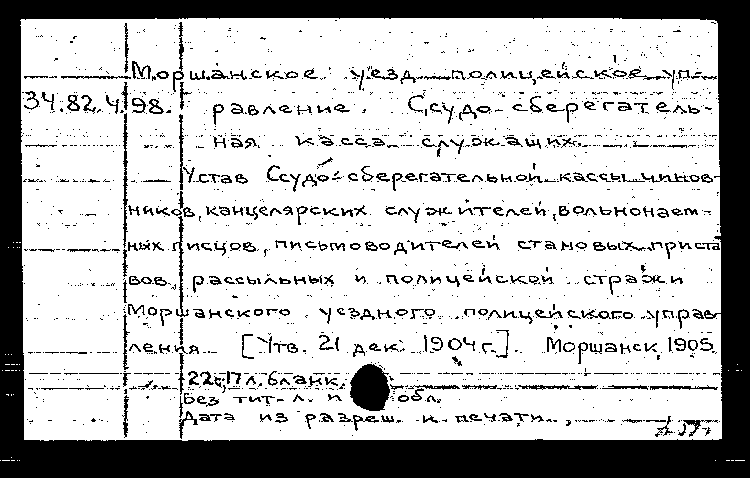 Моршанское уезд. полицейское уп-
34.82.4.98. равление. Ссудо-сберегатель-
ная касса служащих.
Устав Ссудо-сберегательной кассы чинов-
ников, канцелярских служителей, вольнонаем-
ных писцов, письмоводителей становых приста
вов, рассыльных и полицейской стражи
Моршанского уездного полицейского управ
ления. [Утв. 21 дек. 1904 г.]. Моршанск, 1905.
22с. 17л. бланк.
Без тит. л. и обл.
Дата из разреш. к печати.